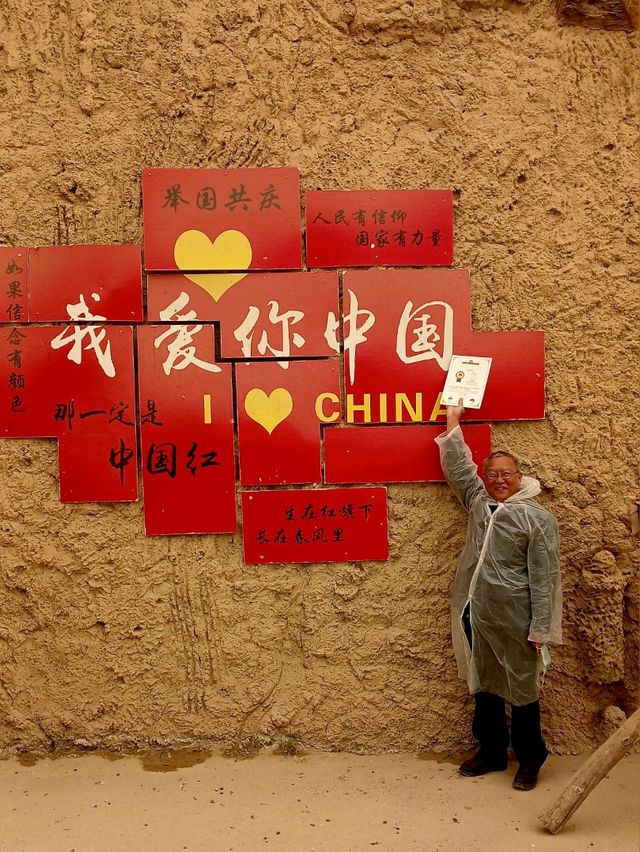 举国共庆
人民有信仰
国家有力量
如果信念有颜色
我爱你中国
那一定是
中国红
I CHINA
生在红旗下
长在春风里